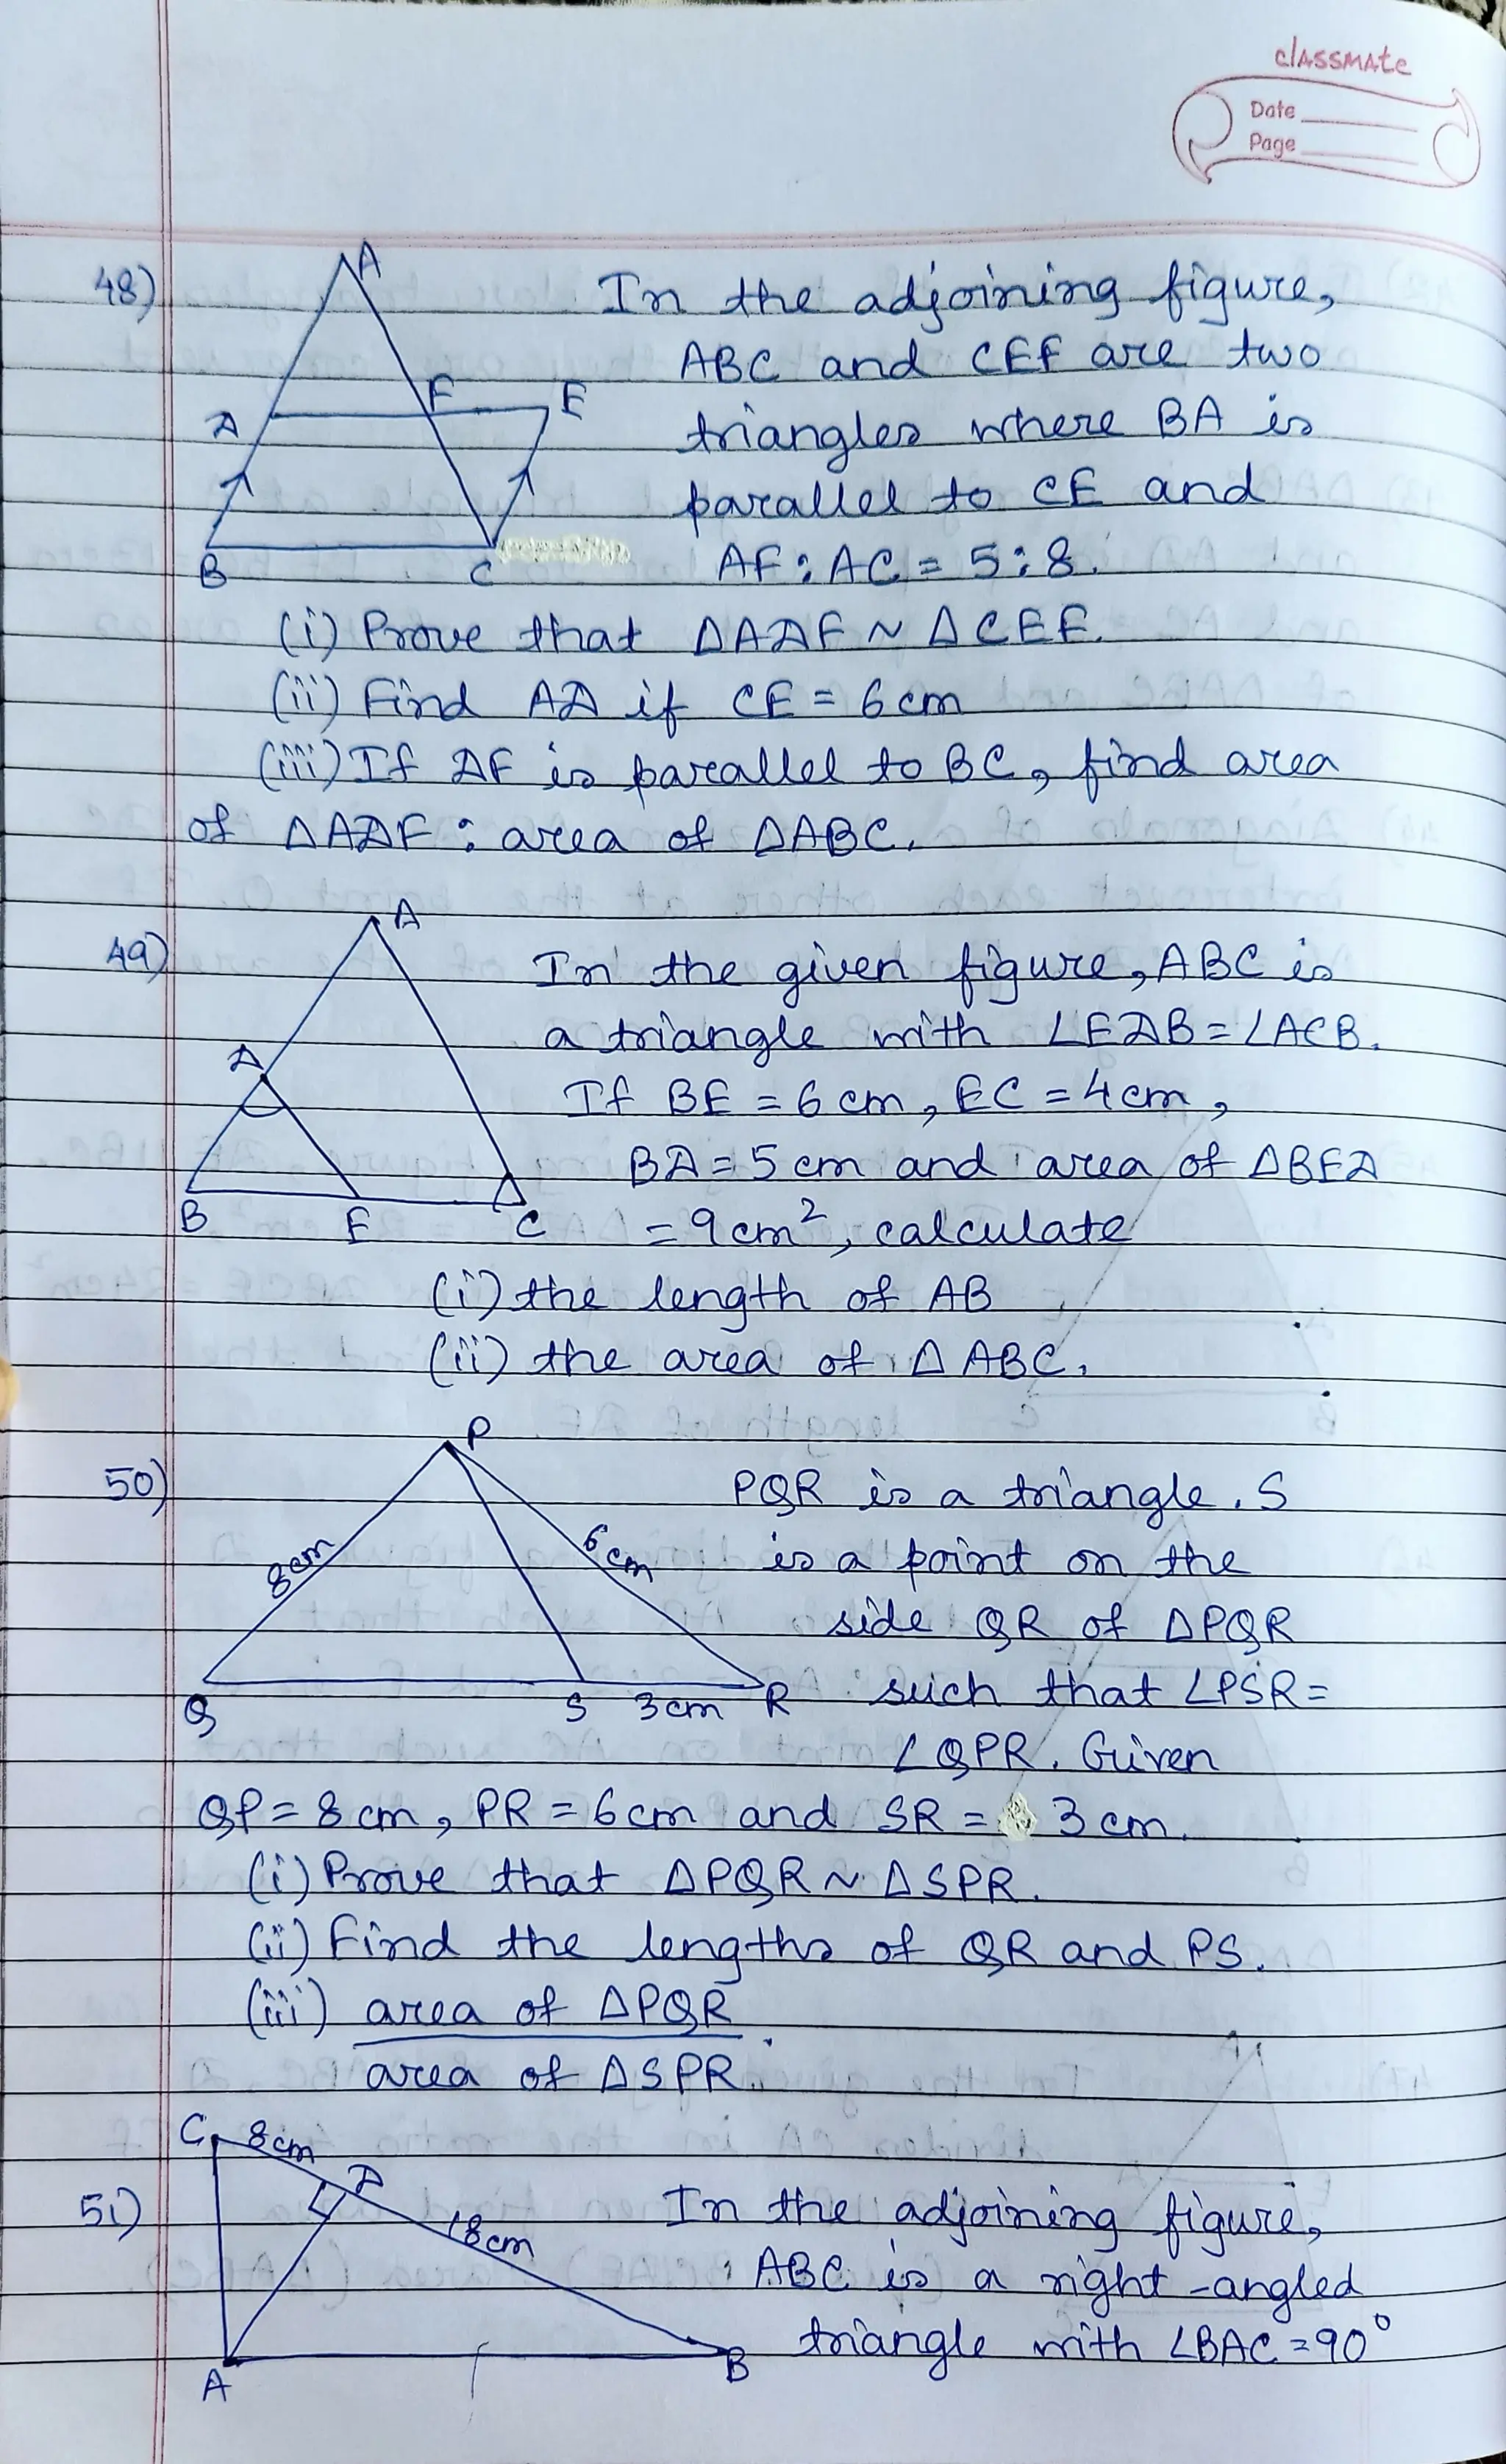 classmate
Date
Page
48)
A
D
F
E
B
C
In the adjoining figure,
ABC and CEF are two
triangles where BA is
parallel to CE and
AF : AC = 5 : 8.
(i) Prove that ΔADF ~ ΔCEF.
(ii) Find AD if CE = 6 cm
(iii) If DF is parallel to BC, find area
of ΔADF : area of ΔABC.
49)
A
D
B
E
C
In the given figure, ABC is
a triangle with ∠EDB = ∠ACB.
If BE = 6 cm, EC = 4 cm,
BD = 5 cm and area of ΔBED
= 9 cm², calculate
(i) the length of AB
(ii) the area of ΔABC.
50)
P
8cm
6cm
Q
S
3cm
R
PQR is a triangle. S
is a point on the
side QR of ΔPQR
such that ∠PSR =
∠QPR. Given
QP = 8 cm, PR = 6 cm and SR = 3 cm.
(i) Prove that ΔPQR ~ ΔSPR.
(ii) Find the lengths of QR and PS.
(iii) area of ΔPQR
area of ΔSPR.
51)
C
8cm
D
18cm
A
B
In the adjoining figure,
ABC is a right-angled
triangle with ∠BAC = 90°